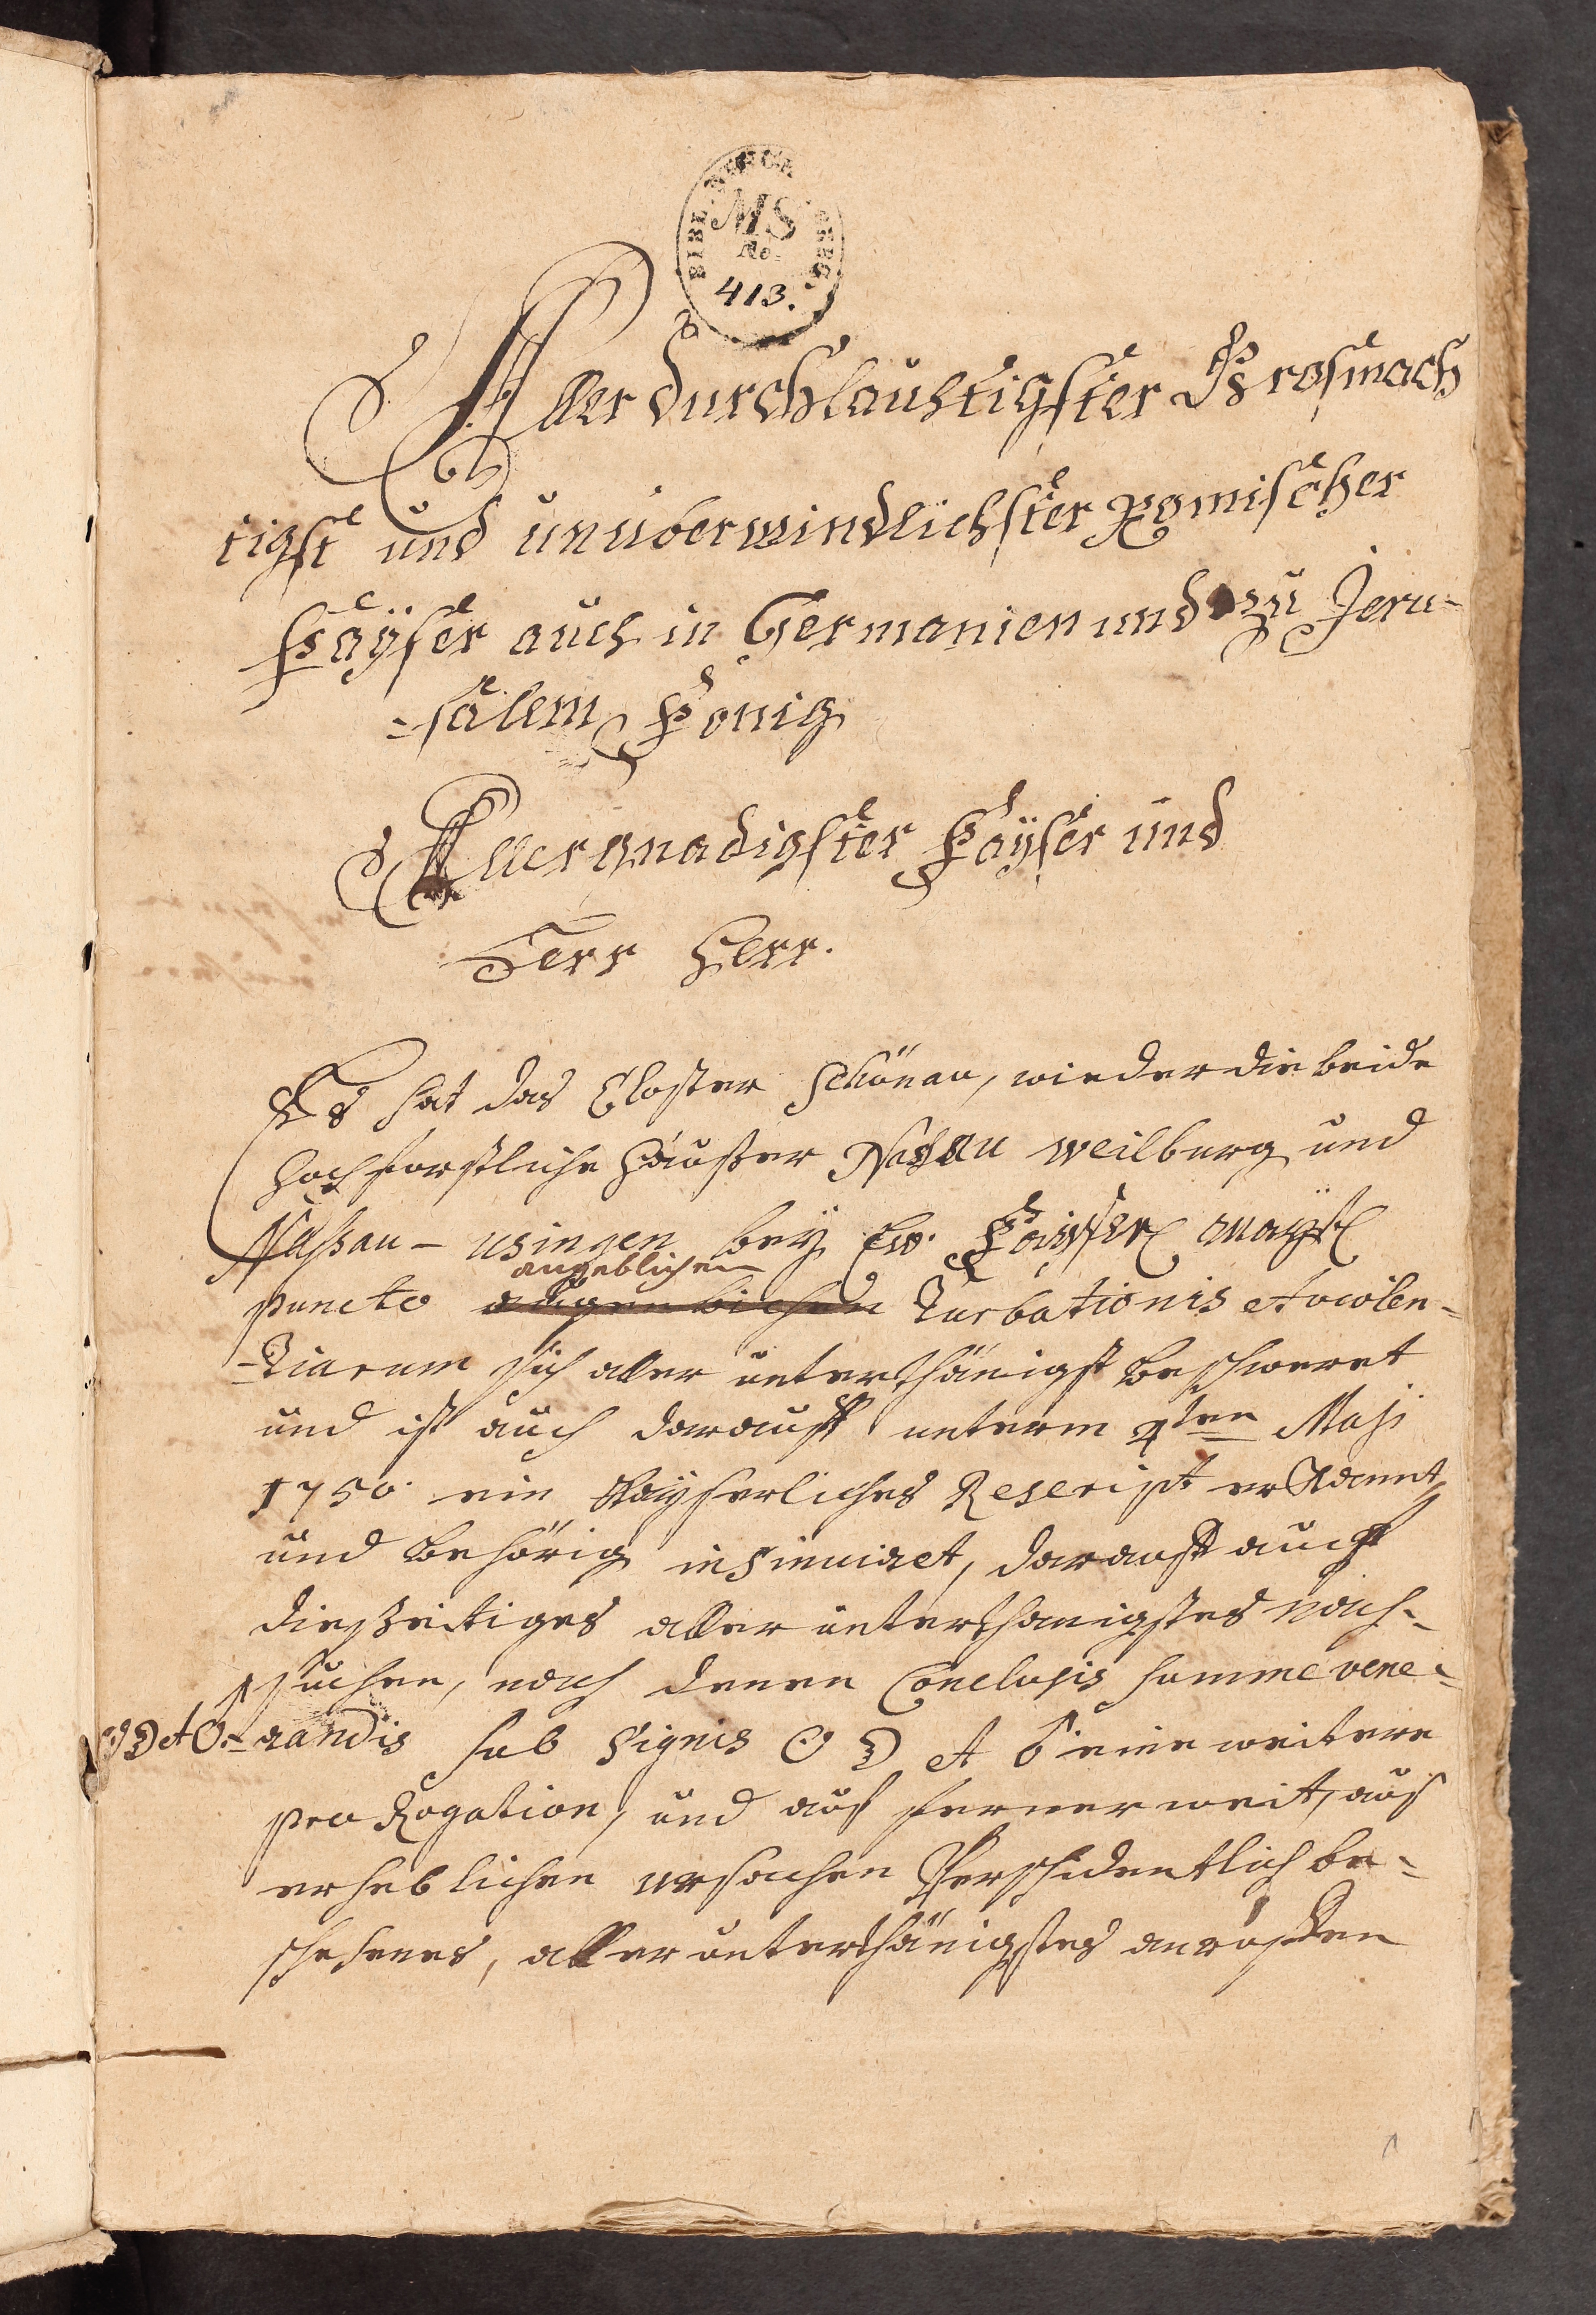 BIBL.
MS
No.
413.
Allerdurchlauchtigster Grosmäch
tigst und unüberwindlichster Römischer
Kayser auch in Germanien und zu Jeru-
-salem König
Allergnädigster Kayser und
Herr Herr.
Es hat das Closter Schönau, wieder die beide
Hochfürstliche Häußer Nassau Weilburg und
Nassau- Usingen bey Ew. Kayserl Mayst
angeblichen
puncto Turbationis et violen-
-tiarum sich aller unterthänigst beschweret
und ist auch darauff unterm 4ten Maji
1750 ein Kayserliches Rescript erkannt,
und behörig insinuiret, darauff auch
dießeitiges aller unterthänigstes nach-
suchen, nach denen Conclusis summe vene-
⊙ ☽ et -randis sub Signis ⊙ ☽ et eine weitere
pro Rogation, und auf fernerweit, aus
erheblichen ursachen beschehentlich be-
schehenes, aller unterthänigstes anruffen